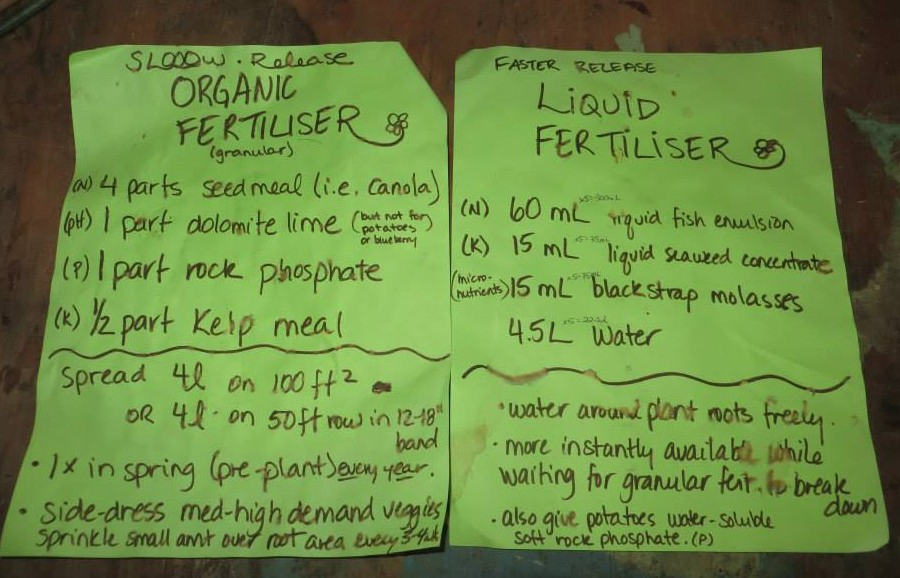 SLOOOW · Release
ORGANIC
FERTILISER
(granular)
(N) 4 parts seedmeal (i.e. Canola)
(pH) 1 part dolomite lime (but not for potatoes or blueberry)
(P) 1 part rock phosphate
(K) 1/2 part Kelp meal
Spread 4l on 100 ft²
OR 4l on 50ft row in 12-18"
band
• 1x in spring (pre-plant) every year.
• Side-dress med-high demand veggies
sprinkle small amt over root area every 3-4wk
FASTER RELEASE
LiQUiD
FERTiLiSER
(N) 60 mL liquid fish emulsion
(K) 15 mL liquid seaweed concentrate
(micro-nutrients) 15 mL blackstrap molasses
4.5L Water
• water around plant roots freely.
• more instantly available while
waiting for granular fert. to break
down
• also give potatoes water-soluble
soft rock phosphate. (P)